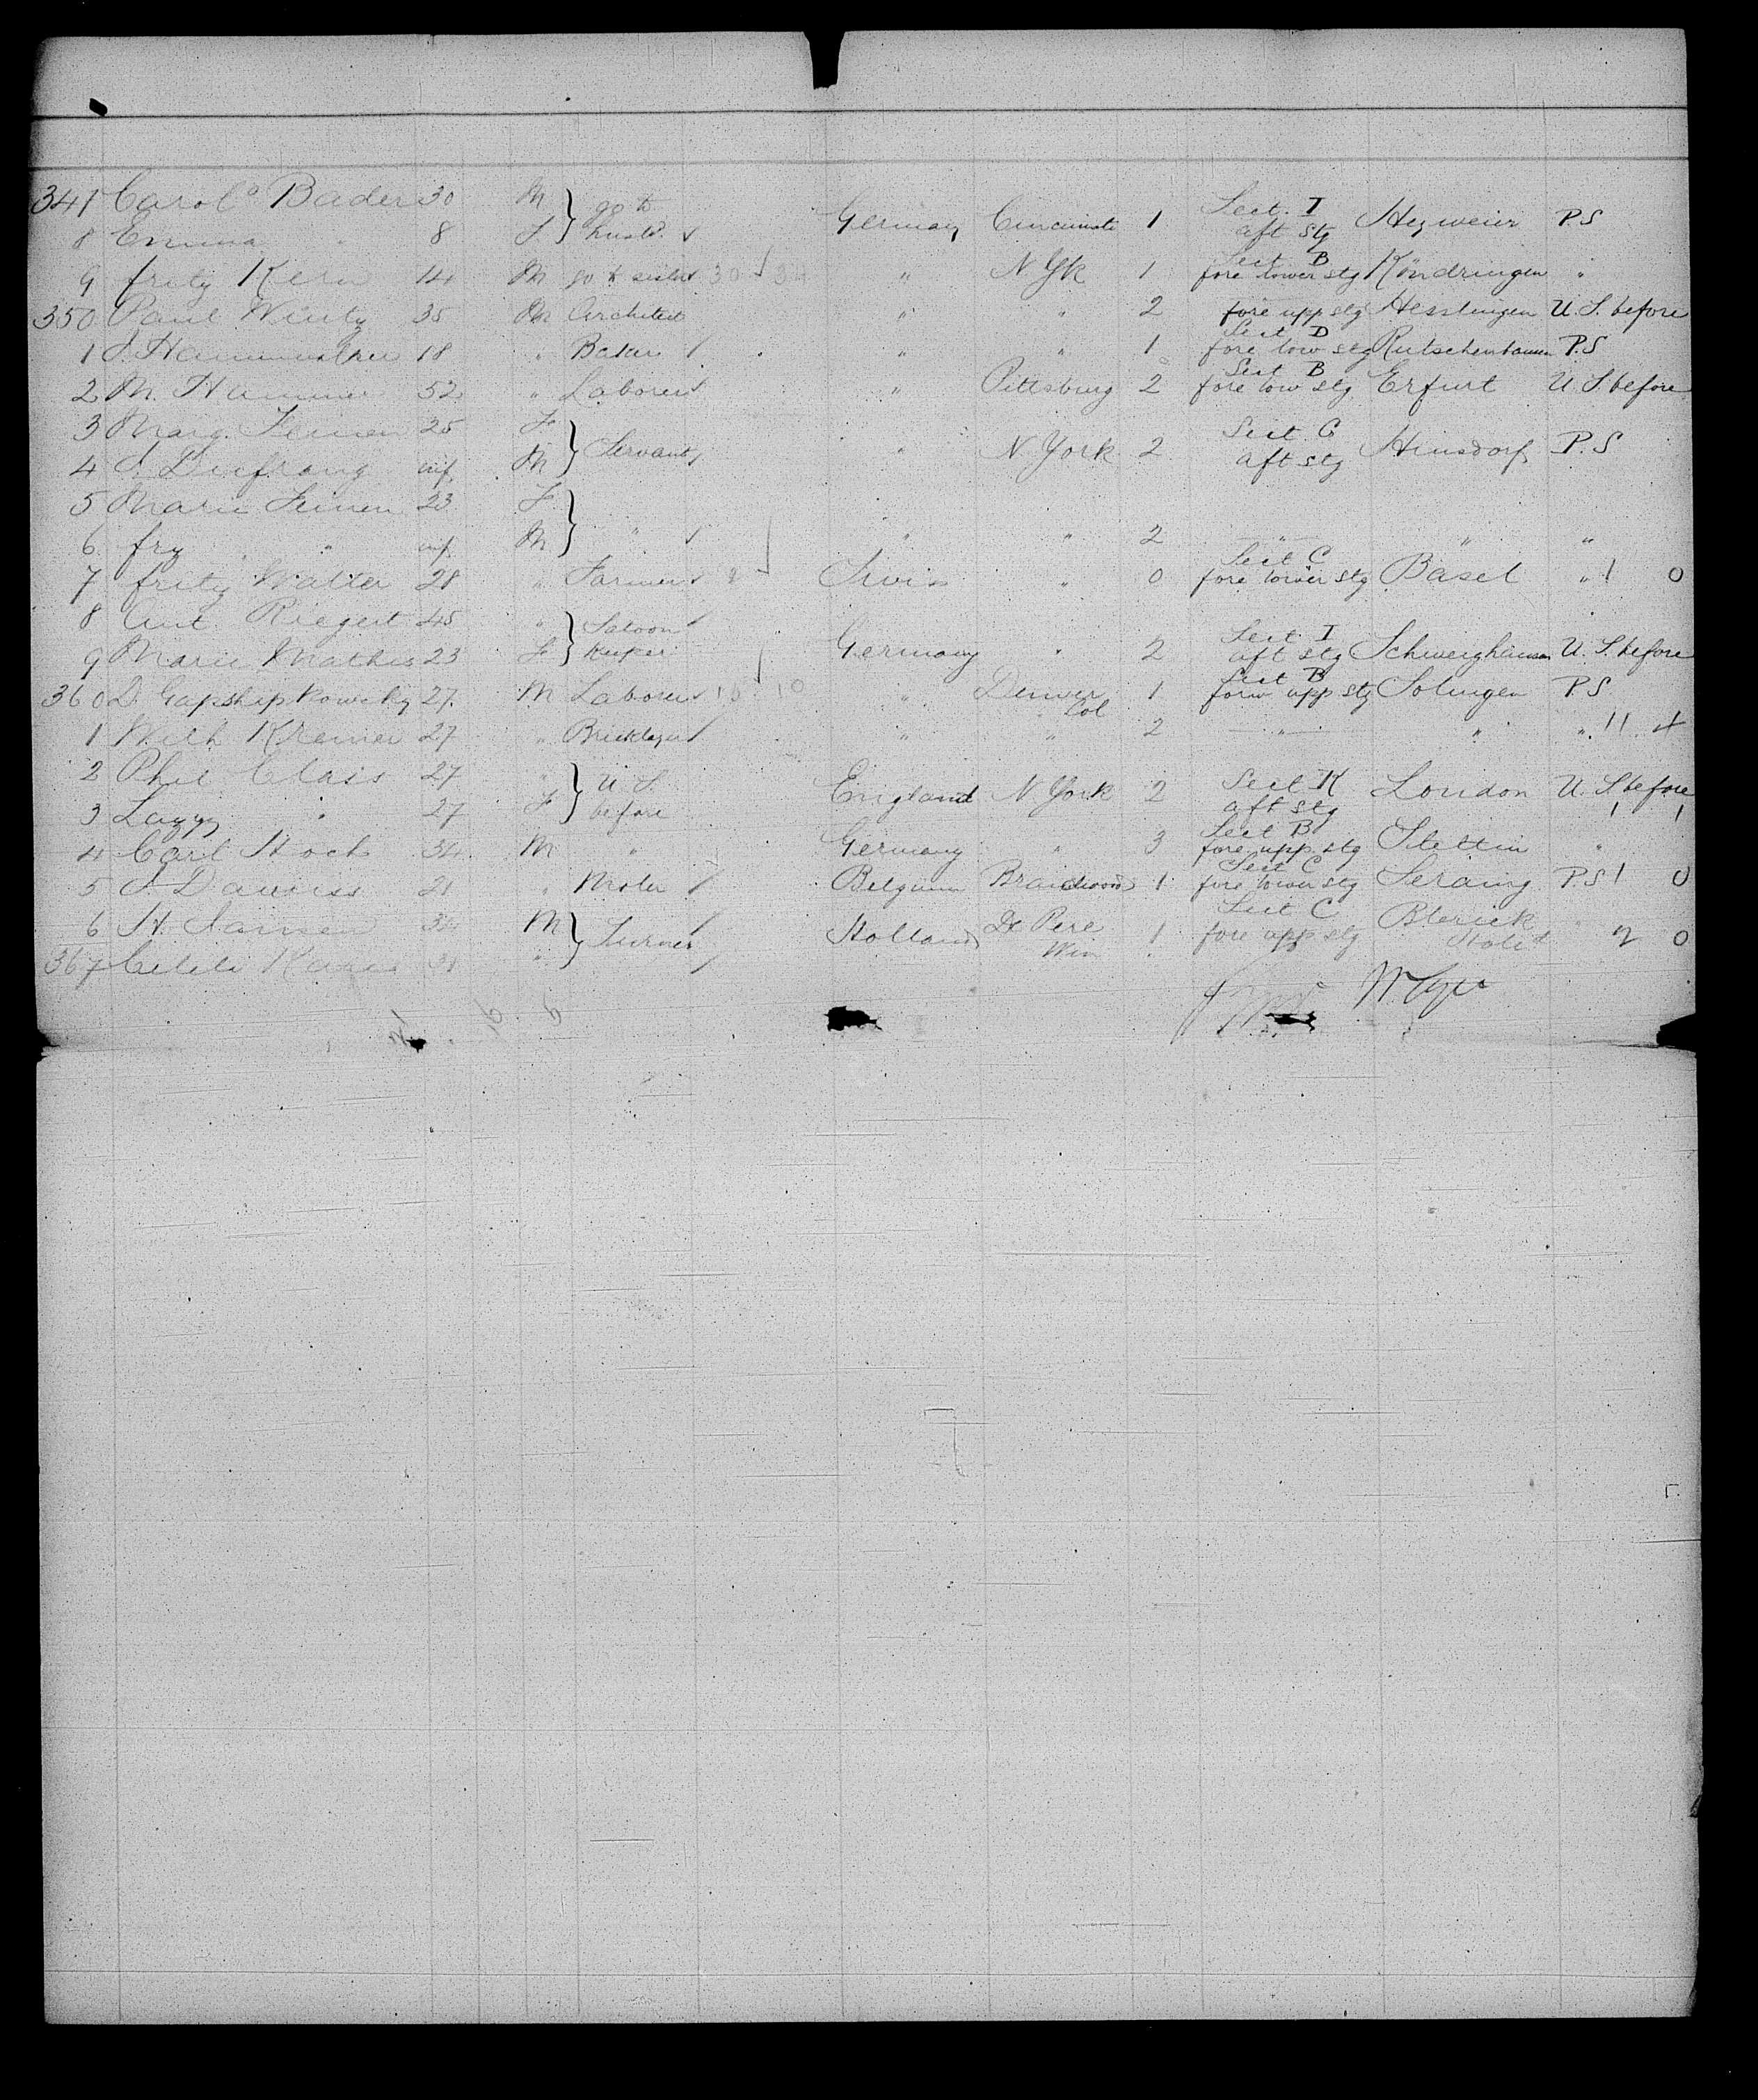 347 Carol^a Bader 30 M } go to husbd. Germany Cincinnati 1 Sect. I aft stg Hegweier P.S
8 Emma " 8 F.
9 fritz Kern 14 M go to sister 30 34 " N Yk 1 Sect B fore lower stg Köndringen "
350 Paul Wintz 35 M Architect " " 2 fore upp stg Hesslingen U.S. before
1 Hammer 18 " Baker " " 1 Sect D fore low stg P.S
2 M. Hammer 52 " Laborer " Pittsburg 2 Sect B fore low stg Erfurt U.S. before
3 Marg. Feinen 25 F } Servant " N York 2 Sect. C aft stg Hinsdorf P.S
4 inf. M
5 Marie Feinen 23 F } " " " 2 " " "
6 " inf. M
7 fritz Walter 28 " Farmer Swiss " 0 Sect C fore lower stg Basel " 1 0
8 Ant. Riegert 45 " } Saloon Keeper Germany " 2 Sect. I aft stg Schweighausen U.S. before
9 Marie Mathis 23 F
360 D 27 M Laborer 10 10 " Denver Col 1 Sect B forw upp stg Solingen P.S
1 Wilh Kremer 27 " Bricklayer " " 2 " " " 11 4
2 Phil Class 27 " } U.S. before England N York 2 Sect K aft stg London U.S. before
3 " 27 F 1 1
4 Carl Hoch 34 M " Germany " 3 Sect B fore upp stg Stettin "
5 21 " Belgium 1 Sect C fore lower stg Seraing P.S 1 0
6 H. Jansen 34 M } Holland De Pere Win 1 Sect C fore upp stg Blerick 2 0
367 31 "